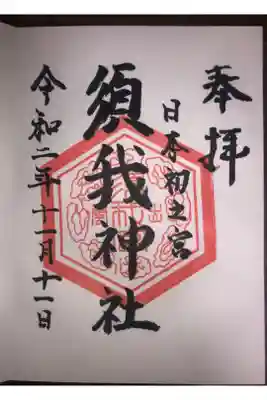 奉拝
日本初之宮
須我神社
令和二年十一月十一日